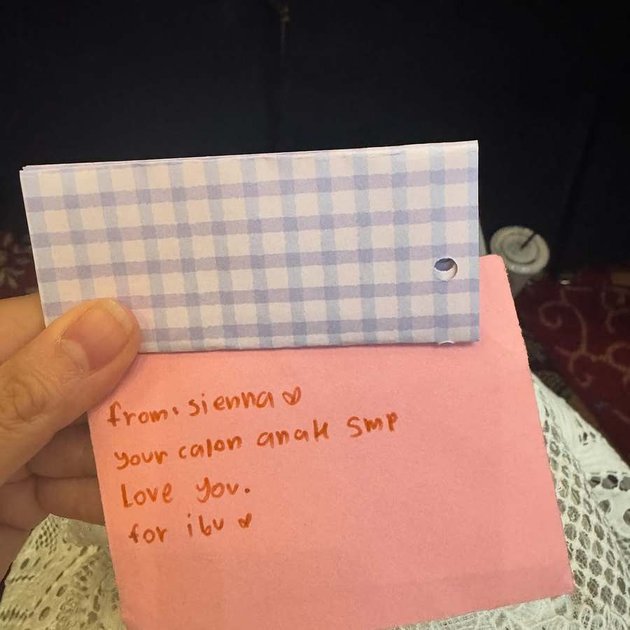 from: sienna ♡
your calon anak smp
Love you.
for ibu ♡